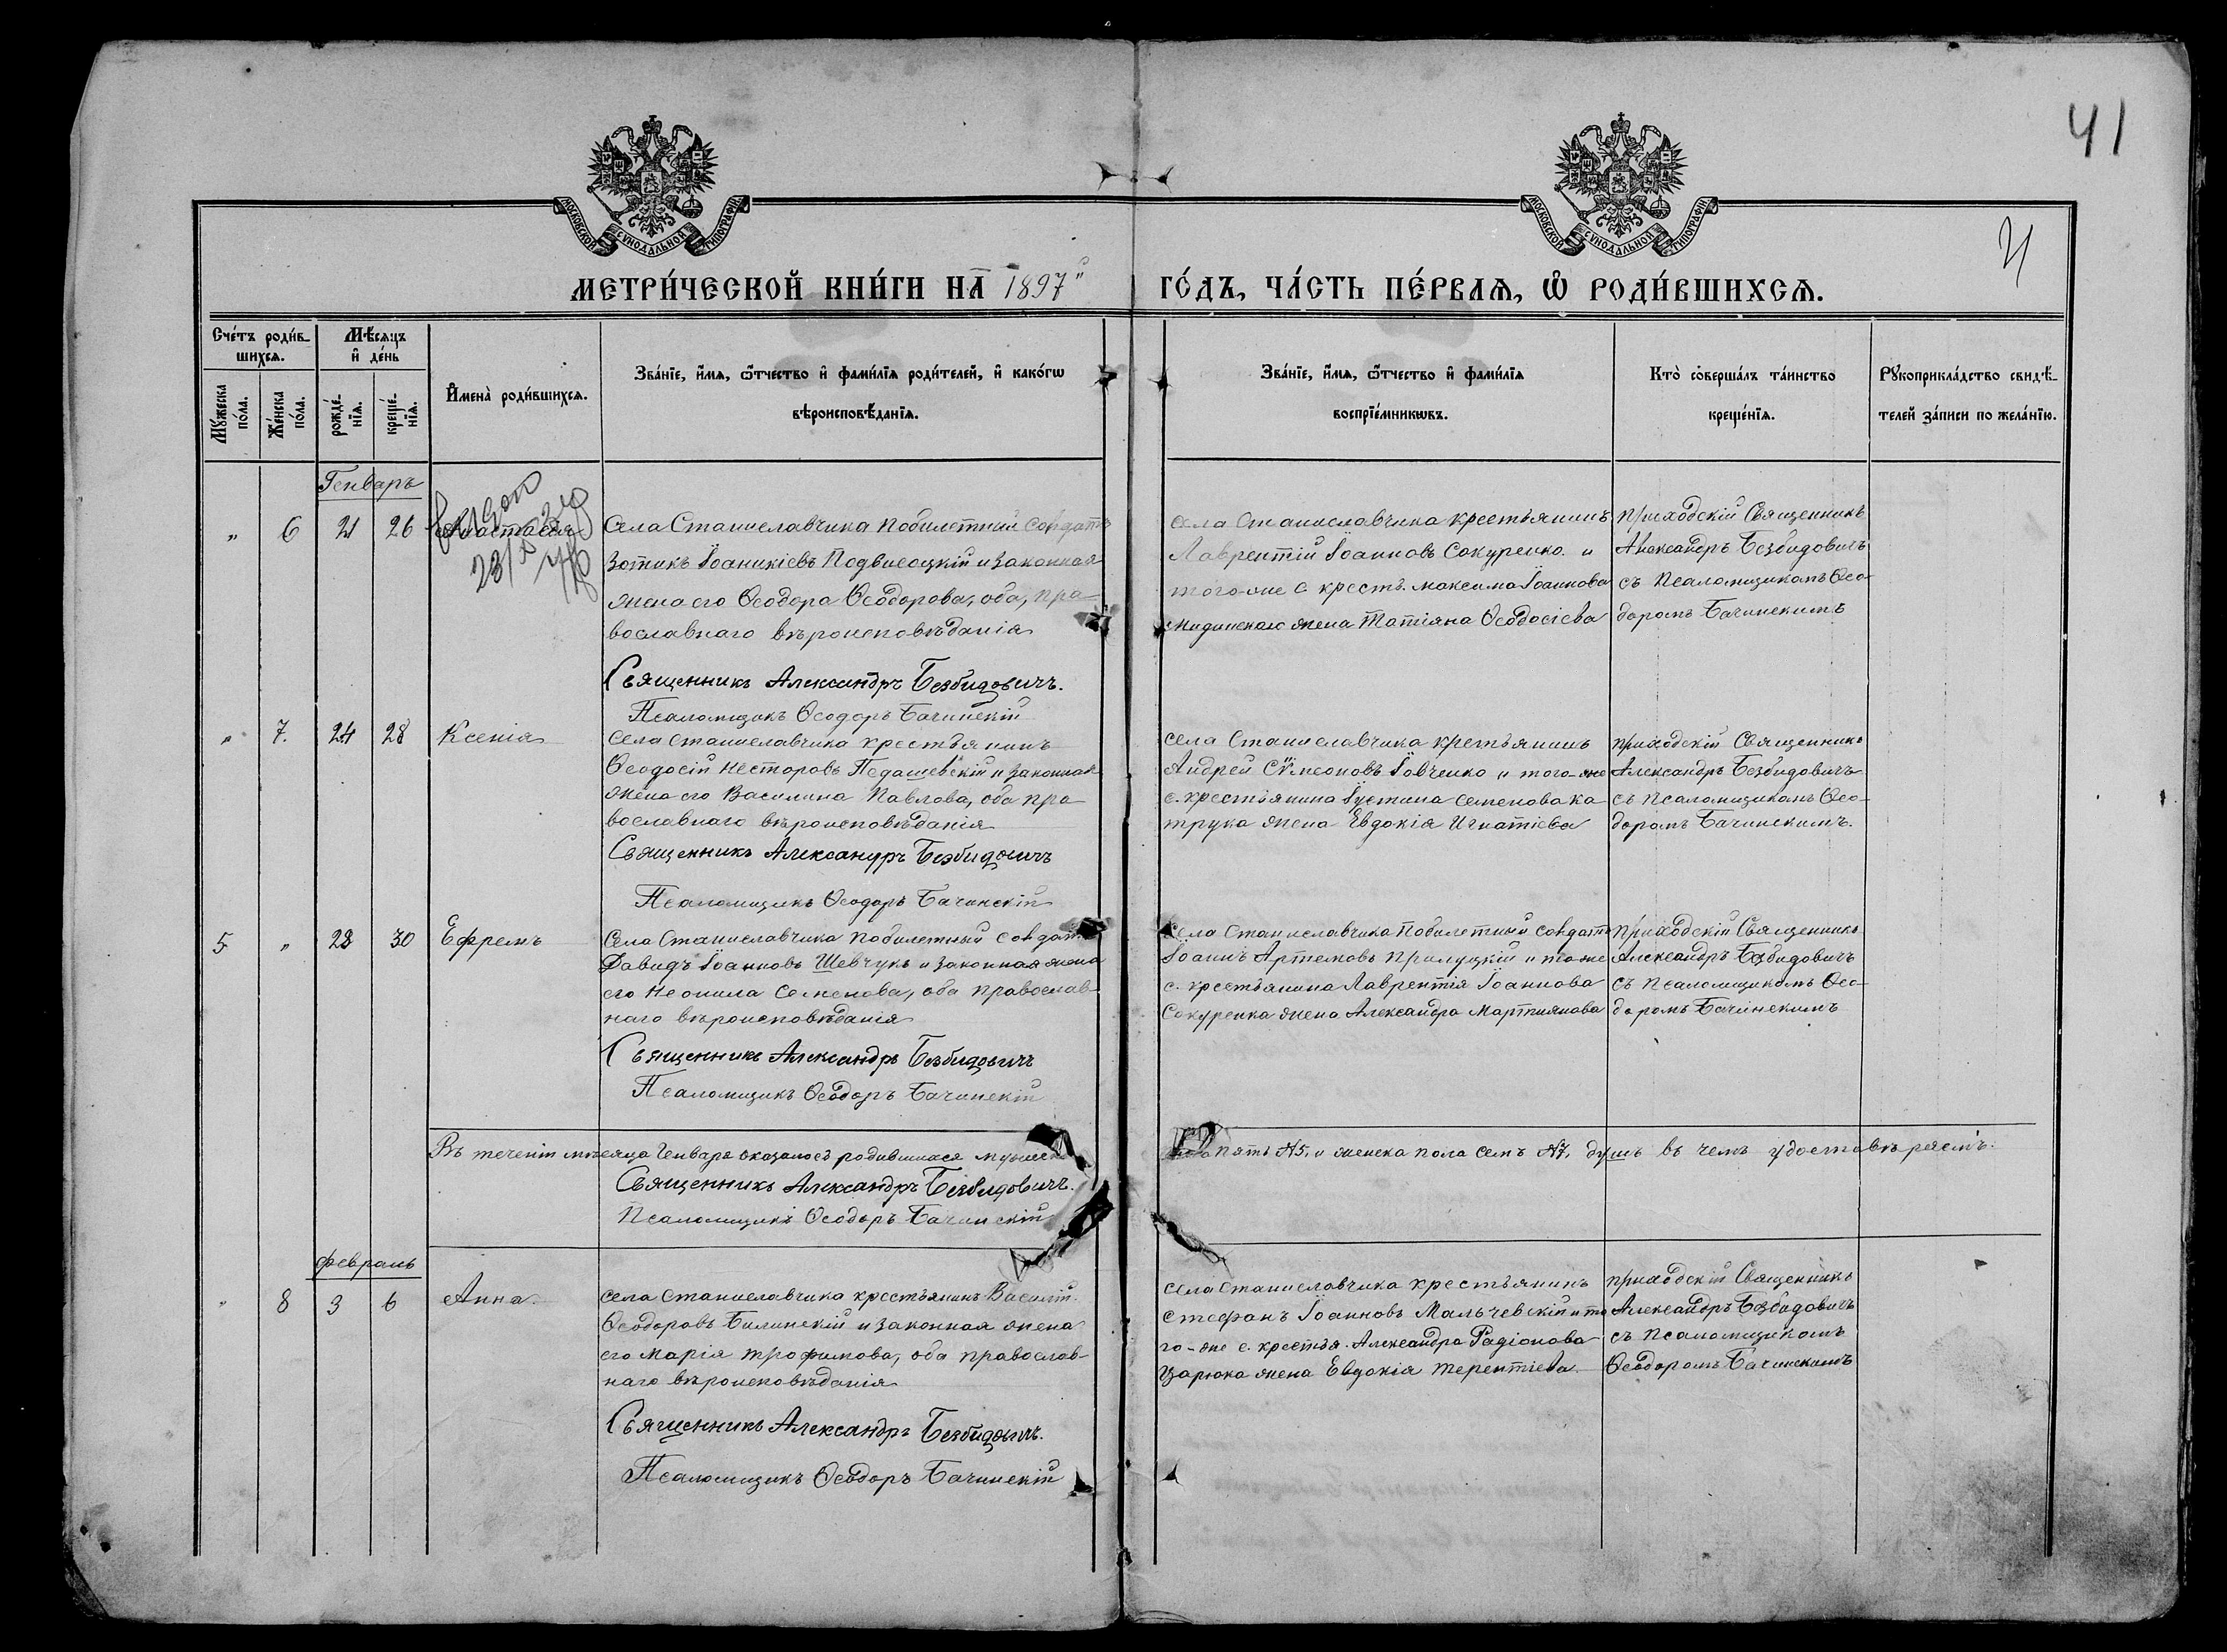 41
И
МОСКОВСКОЙ СѴНОДАЛЬНОЙ ТИПОГРАФІИ
МОСКОВСКОЙ СѴНОДАЛЬНОЙ ТИПОГРАФІИ
МЕТРИ́ЧЕСКОЙ КНИ́ГИ НА 1897й ГО́ДЪ, ЧА́СТЬ ПЕ́РВАЯ, Ѡ РОДИ́ВШИХСЯ.
Сче́тъ роди́в-
шихся.
Мѣ́сяцъ
и де́нь
Му́жеска
по́ла.
Же́нска
по́ла.
рожде́-
нїя.
креще́-
нїя.
Имена̀ роди́вшихся.
Зва́нїе, и́мя, ѻ҆́тчество и фами́лїя роди́телей, и како́гѡ
вѣроисповѣ́данїя.
Зва́нїе, и́мя, ѻ҆́тчество и фами́лїя
воспрїе́мникѡвъ.
Кто̀ соверша́лъ та́инство
креще́нїя.
Рꙋкоприкла́дство свидѣ́-
телей за́писи по жела́нїю.
Генварь
" 6 21 26 Анастасія
Села Станиславчика побилетный солдатъ
Зотикъ Іоанникіевъ Подвисоцкій и законная
жена его Ѳеодора Ѳеодорова, оба, пра-
вославнаго вѣроисповѣданія
Священникъ Александръ Безбидовичъ.
Псаломщикъ Ѳеодоръ Бачинскій
села Станиславчика крестьянинъ
Лаврентій Іоанновъ Сокуренко и
того-же с. крест. Максима Іоаннова
жена Татіяна Ѳеодосіева
приходскій Священникъ
Александръ Безбидовичъ
съ Псаломщикомъ Ѳео-
доромъ Бачинскимъ
" 7. 24 28 Ксенія
Села Станиславчика крестьянинъ
Ѳеодосій Несторовъ Педашевскій и законная
жена его Василина Павлова, оба пра-
вославнаго вѣроисповѣданія
Священникъ Александръ Безбидовичъ
Псаломщикъ Ѳеодоръ Бачинскій
села Станиславчика крестьянинъ
Андрей Сѷмеоновъ Іовченко и того-же
с. крестьянина Іустина Семенова Ка-
трука жена Евдокія Игнатіева
приходскій Священникъ
Александръ Безбидовичъ
съ псаломщикомъ Ѳео-
доромъ Бачинскимъ.
5 " 28 30 Ефремъ
Села Станиславчика побилетный солдатъ
Давидъ Іоанновъ Шевчукъ и законная жена
его Неонила Семенова, оба православ-
наго вѣроисповѣданія
Священникъ Александръ Безбидовичъ
Псаломщикъ Ѳеодоръ Бачинскій
Села Станиславчика побилетный солдатъ
Іоаннъ Артемовъ Прилуцкій и тоже
с. крестьянина Лаврентія Іоаннова
Сокуренка жена Александра Мартиянова
приходскій Священникъ
Александръ Безбидовичъ
съ псаломщикомъ Ѳео-
доромъ Бачинскимъ
Въ теченіи мѣсяца Генваря оказалось родившихся мужеска
пола пять №5, и женска пола семь №7, душъ въ чемъ удостовѣряемъ.
Священникъ Александръ Безбидовичъ.
Псаломщикъ Ѳеодоръ Бачинскій
Февраль
" 8 3 6 Анна.
села Станиславчика крестьянинъ Василій
Ѳеодоровъ Билинскій и законная жена
его Марія Трофимова, оба православ-
наго вѣроисповѣданія
Священникъ Александръ Безбидовичъ.
Псаломщикъ Ѳеодоръ Бачинскій
села Станиславчика крестьянинъ
Стефанъ Іоанновъ Мальчевскій и то
го-же с. крестья. Александра Радіонова
Царюка жена Евдокія Терентіева.
приходскій Священникъ
Александръ Безбидовичъ
съ псаломщикомъ
Ѳеодоромъ Бачинскимъ